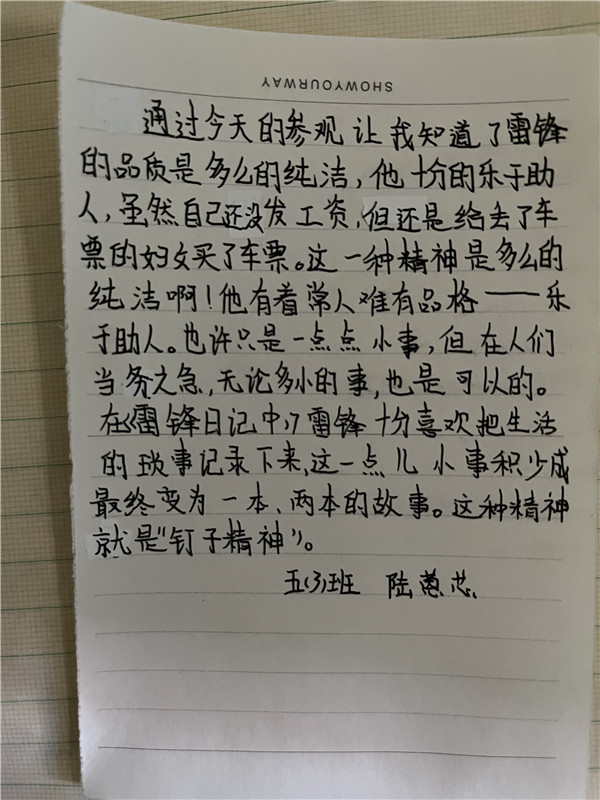 SHOWYOURWAY
通过今天的参观让我知道了雷锋
的品质是多么的纯洁，他十分的乐于助
人，虽然自己还没发工资，但还是给丢了车
票的妇女买了车票。这一种精神是多么的
纯洁啊！他有着常人难有品格——乐
于助人。也许只是一点点小事，但在人们
当务之急，无论多小的事，也是可以的。
在《雷锋日记中》雷锋十分喜欢把生活
的琐事记录下来，这一点儿小事积少成
最终变为一本、两本的故事。这种精神
就是“钉子精神”。
五(3)班 陆蕙芯